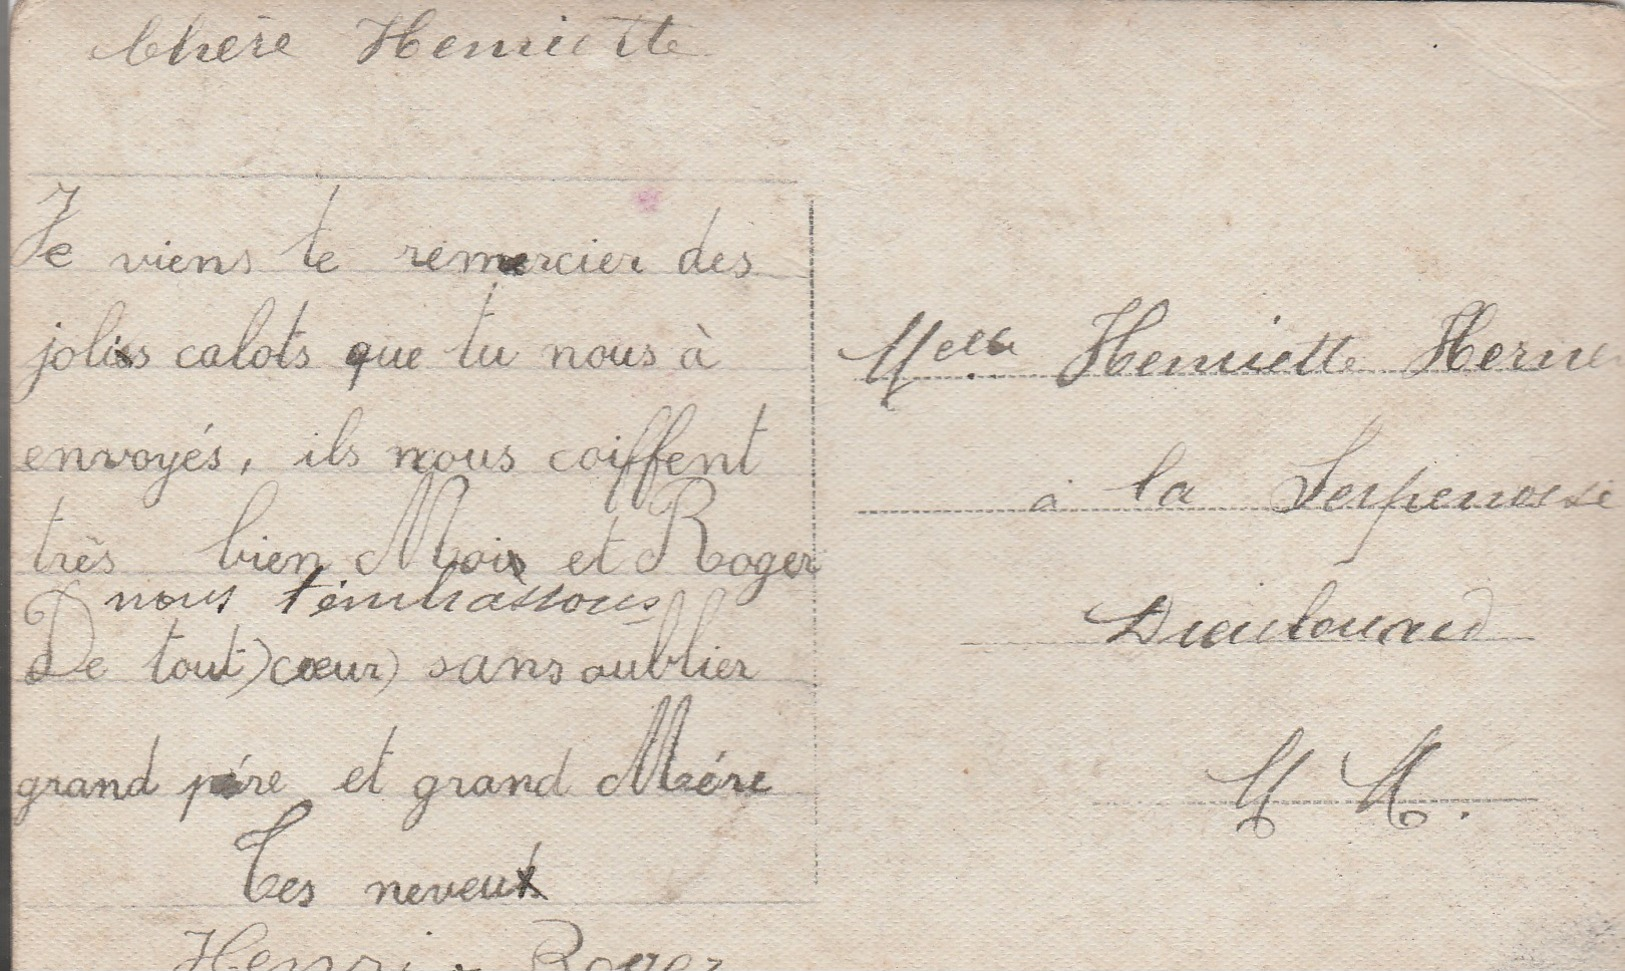 Chère Henriette
Je viens te remercier des
jolis calots que tu nous à
envoyés, ils nous coiffent
très bien Moi et Roger
nous t'embrassons
De tout cœur sans oublier
grand pére et grand Mére
Tes neveux
Henri - Roger
Melle Henriette
à la
Dieulouard
M. M.